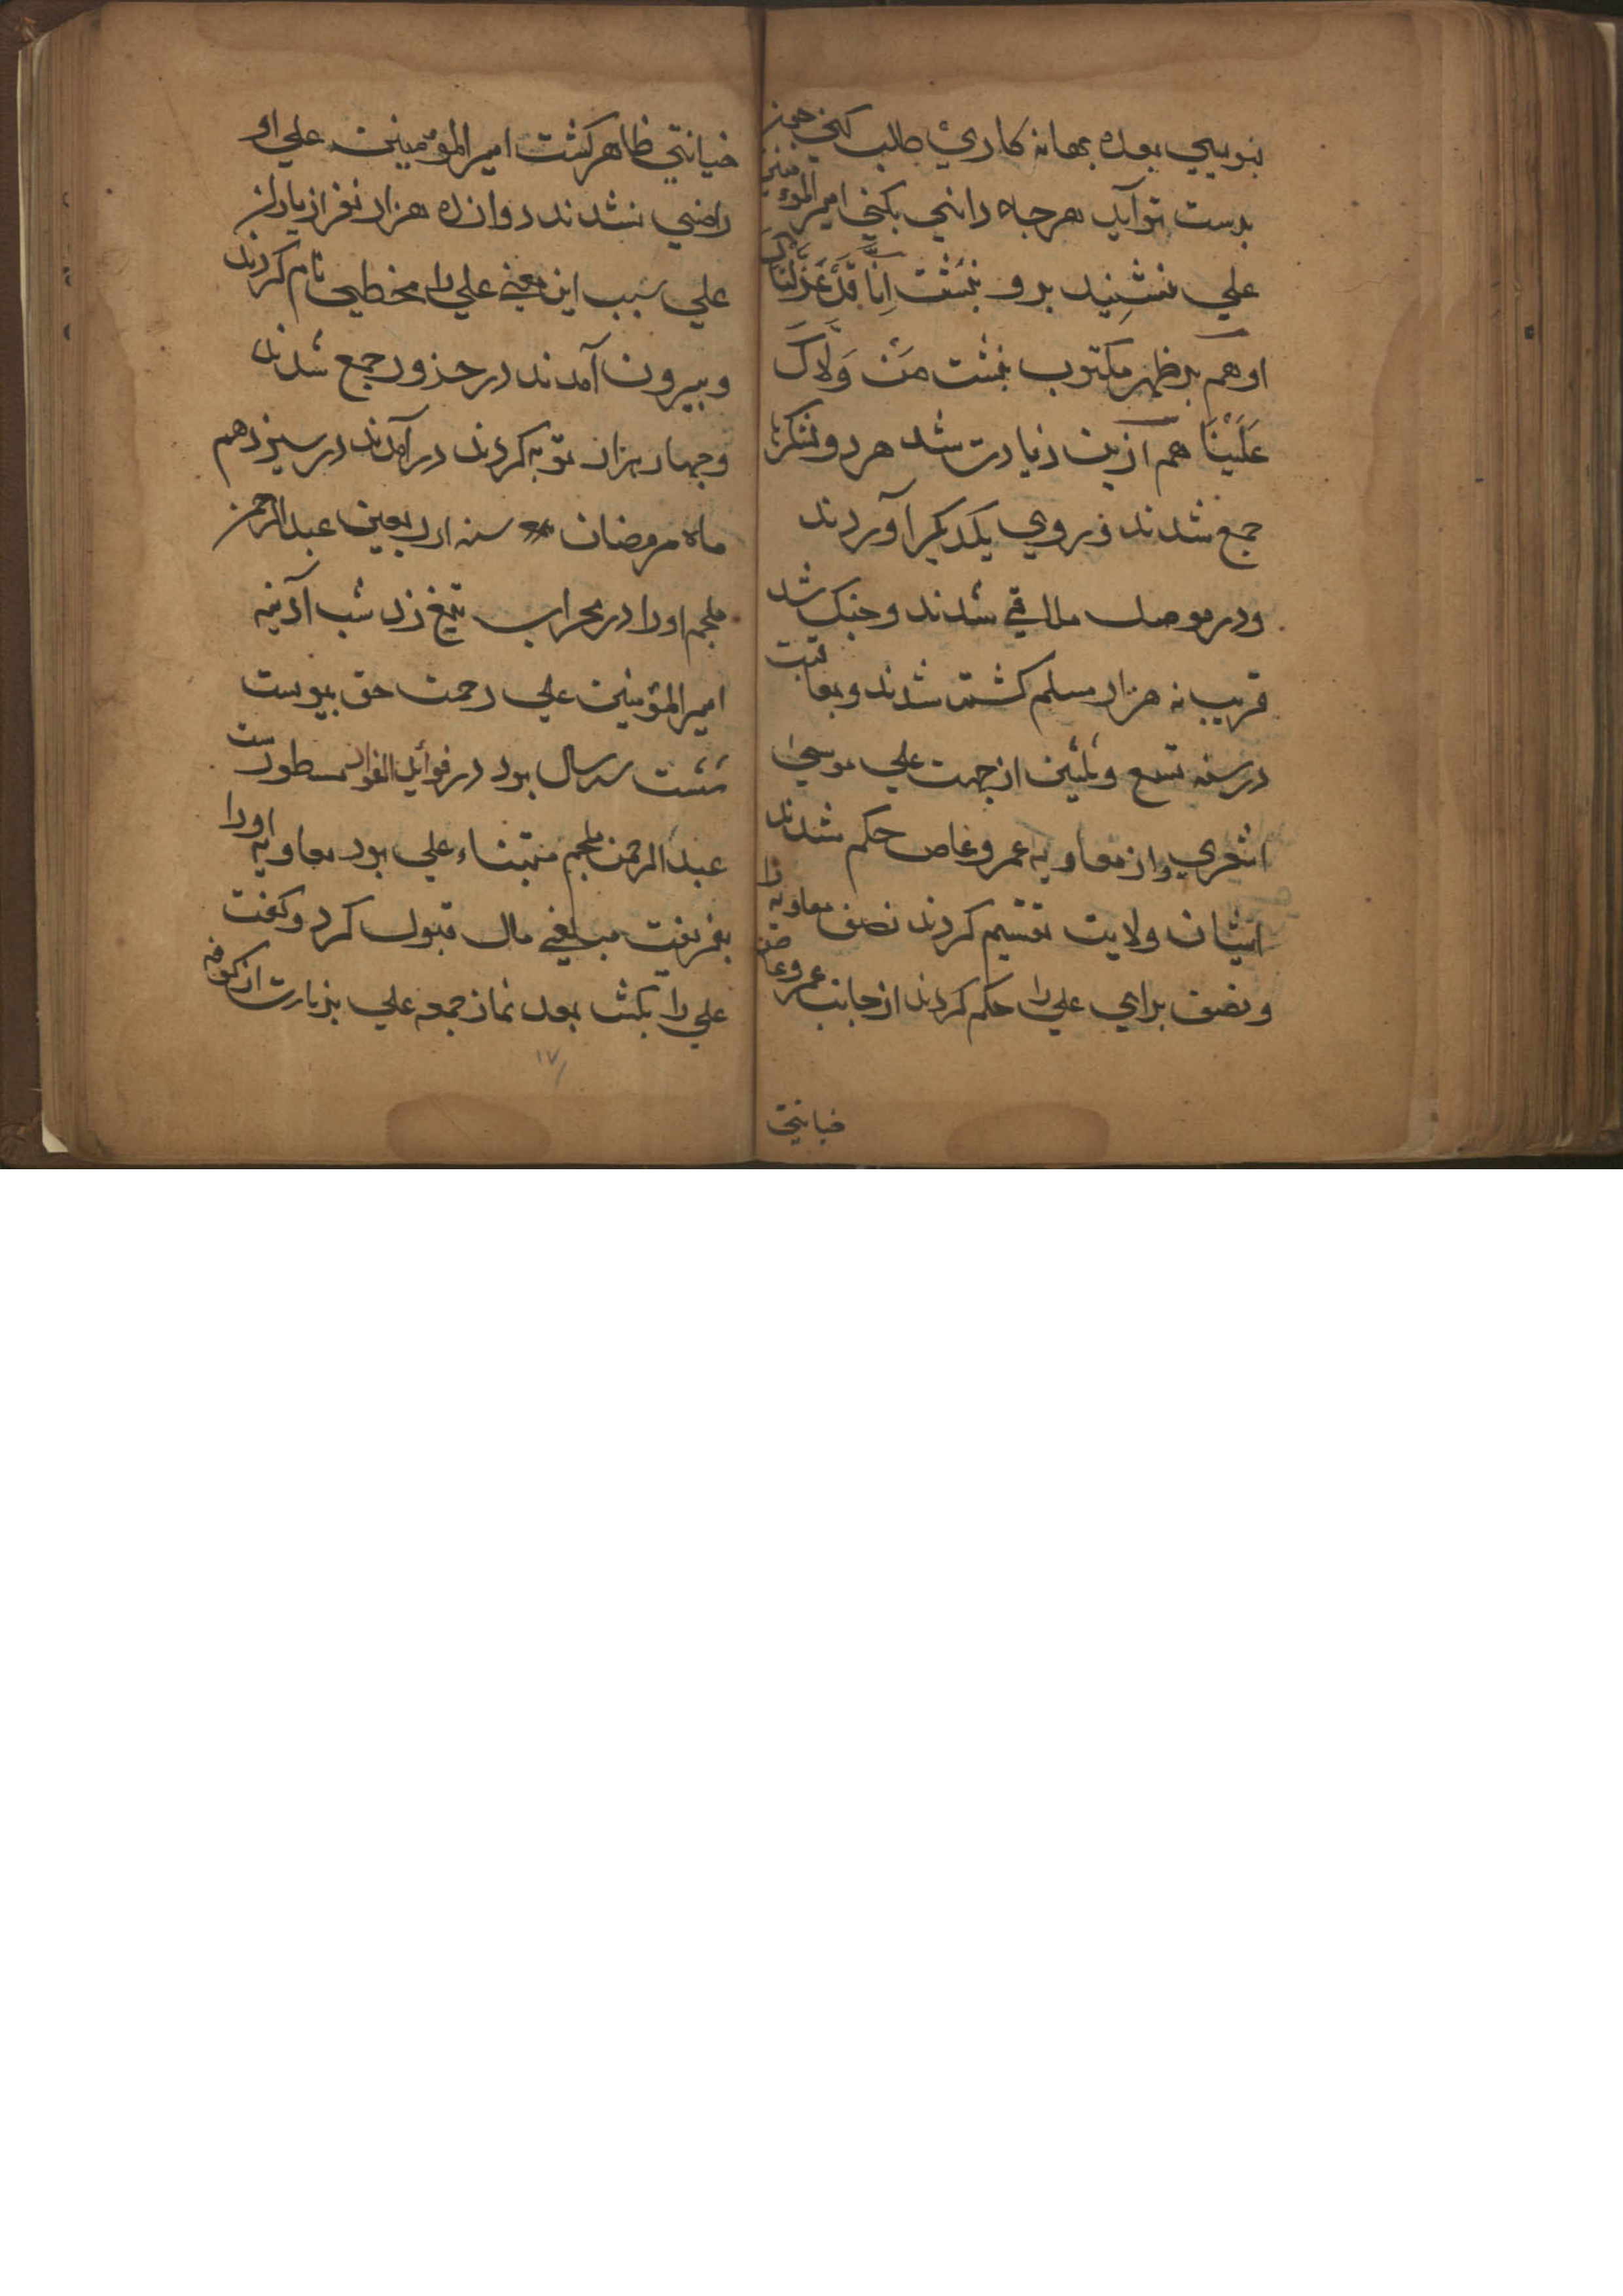 بنویسی بعده بهانه کاری طلب کنی چیز
بدست تو آید هرجه دانی بکنی امیر المؤمنین
علی بنشنید برو بنبشت اِنَّا قَدْ عَزَلْنَاکَ
او هم بر ظهر مکتوب بنبشت مَنْ وَلَّاکَ
عَلَیْنَا هم ازین زیادت شد هر دو لشکر
جمع شدند و بروی یکدیکر آوردند
و در موصل ملاقی شدند و جنک شد
قریب نه هزار مسلم کشته شدند و بعاقبت
در سنه تسع و ثلثین از جهت علی موسی
اشعری و از معاویه عمرو عاص حکم شدند
ایشان ولایت تقسیم کردند نصف معاویه را
و نصف برای علی را حکم کردند از جانب عمرو عاص
خیانتی
خیانتی ظاهر کشت امیر المؤمنین علی او
راضی نشدند دوازده هزار نفر از یاران
علی سبب این معنی علی را مخطی نام کردند
و بیرون آمدند در حذور جمع شدند
و جهار هزار توبه کردند در آمدند در سیزدهم
ماه رمضان سنه اربعین عبد الرحمن
ملجم او را در محراب تیغ زد شب آدینه
امیر المؤمنین علی رحمت حق بیوست
شست سه سال بود در فوائد الفواد مسطورست
عبد الرحمن ملجم متبناء علی بود معاویه او را
بفریفت مبلغی مال قبول کرد و کفت
علی را بکش بعد نماز جمعه علی بزیارت از کوفه
۱۷